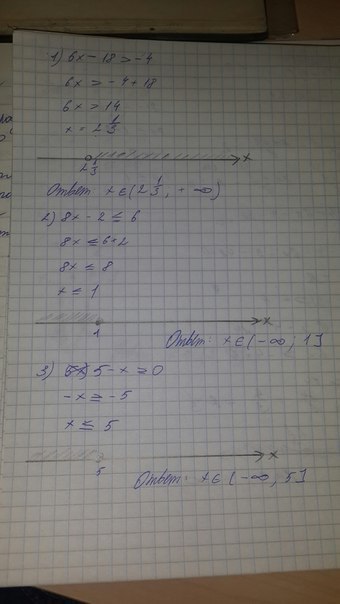 1) 6x - 18 > -4
6x > -4 + 18
6x > 14
x = 2 1/3
x
2 1/3
Ответ: x ∈ (2 1/3, + ∞)
2) 8x - 2 ≤ 6
8x ≤ 6+2
8x ≤ 8
x ≤ 1
x
1
Ответ: x ∈ (-∞; 1]
3) 5 - x ≥ 0
-x ≥ -5
x ≤ 5
x
5
Ответ: x ∈ (-∞, 5]